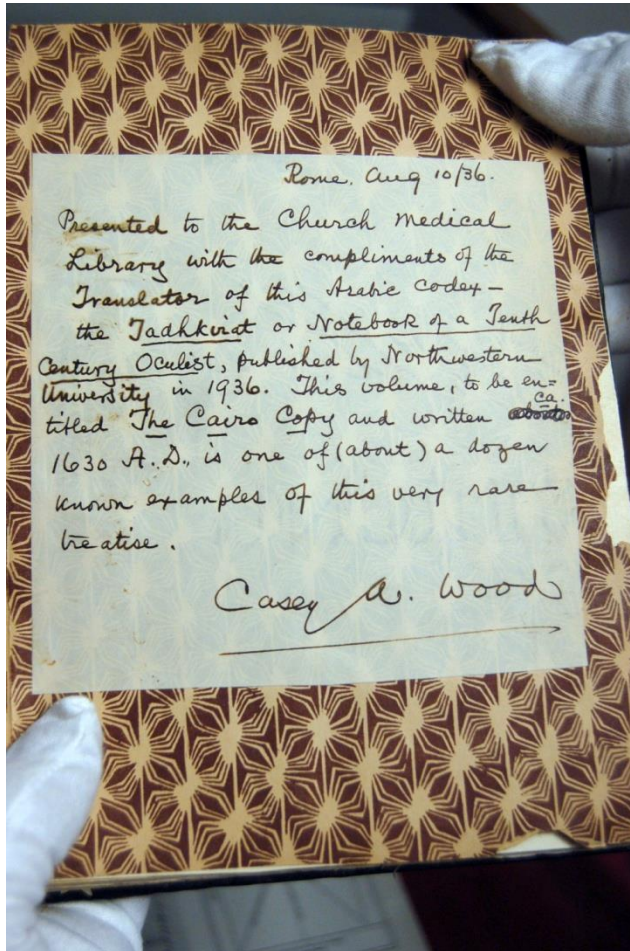 Rome. Aug 10/36.
Presented to the Church Medical
Library with the compliments of the
Translator of this Arabic codex —
the Tadhkirat or Notebook of a Tenth
Century Oculist, published by Northwestern
University in 1936. This volume, to be en=
titled The Cairo Copy and written ca.
1630 A.D., is one of (about) a dozen
known examples of this very rare
treatise.
Casey A. Wood